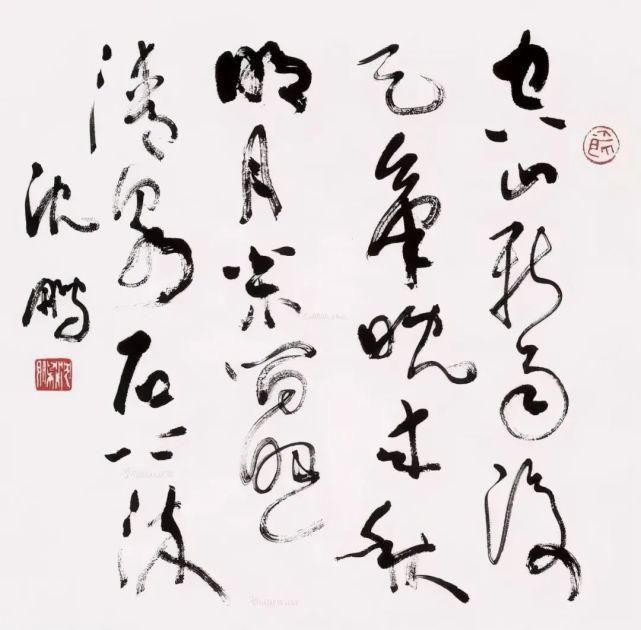 空山新雨後
天氣晚来秋
明月松間照
清泉石上流
沈鹏